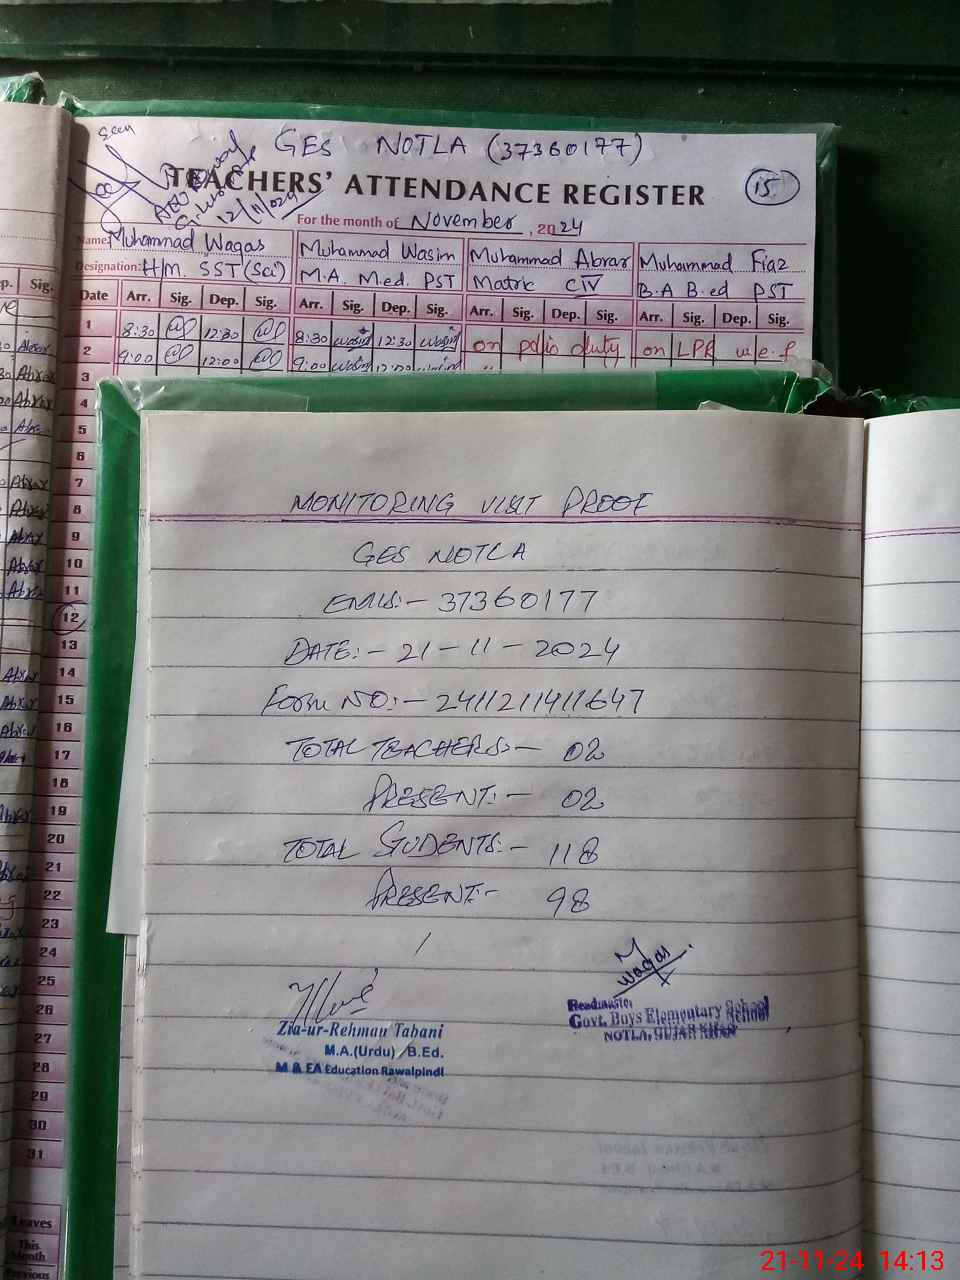 Seen
GES NOTLA (37360177)
TEACHERS' ATTENDANCE REGISTER
15
12/11/024
For the month of November, 2024
Name: Muhammad Waqas Muhammad Wasim Muhammad Abrar Muhammad Fiaz
Designation: HM. SST (Sci) M.A. M.ed. PST Matric CIV B.A B.ed PST
Date Arr. Sig. Dep. Sig. Arr. Sig. Dep. Sig. Arr. Sig. Dep. Sig. Arr. Sig. Dep. Sig.
1 8:30 12:30 8:30 Wasim 12:30 Wasim on polio duty on LPR w.e.f
2 9:00 12:00 9:00 Wasim
3
4
5
6
7
8
9
10
11
12
13
14
15
16
17
18
19
20
21
22
23
24
25
26
27
28
29
30
31
Leaves
This
Month
Previous
p. Sig.
Abrar
Abrar
Abrar
Abrar
Abrar
Abrar
Abrar
Abrar
MONITORING VISIT PROOF
GES NOTLA
EMIS:- 37360177
DATE:- 21-11-2024
Form NO:- 2411211411647
TOTAL TEACHERS:- 02
PRESENT:- 02
TOTAL STUDENTS:- 118
PRESENT:- 98
Zia-ur-Rehman Tabani
M.A.(Urdu) B.Ed.
M & EA Education Rawalpindi
Waqas
Headmaster
Govt. Boys Elementary School
NOTLA, GUJAR KHAN
21-11-24 14:13